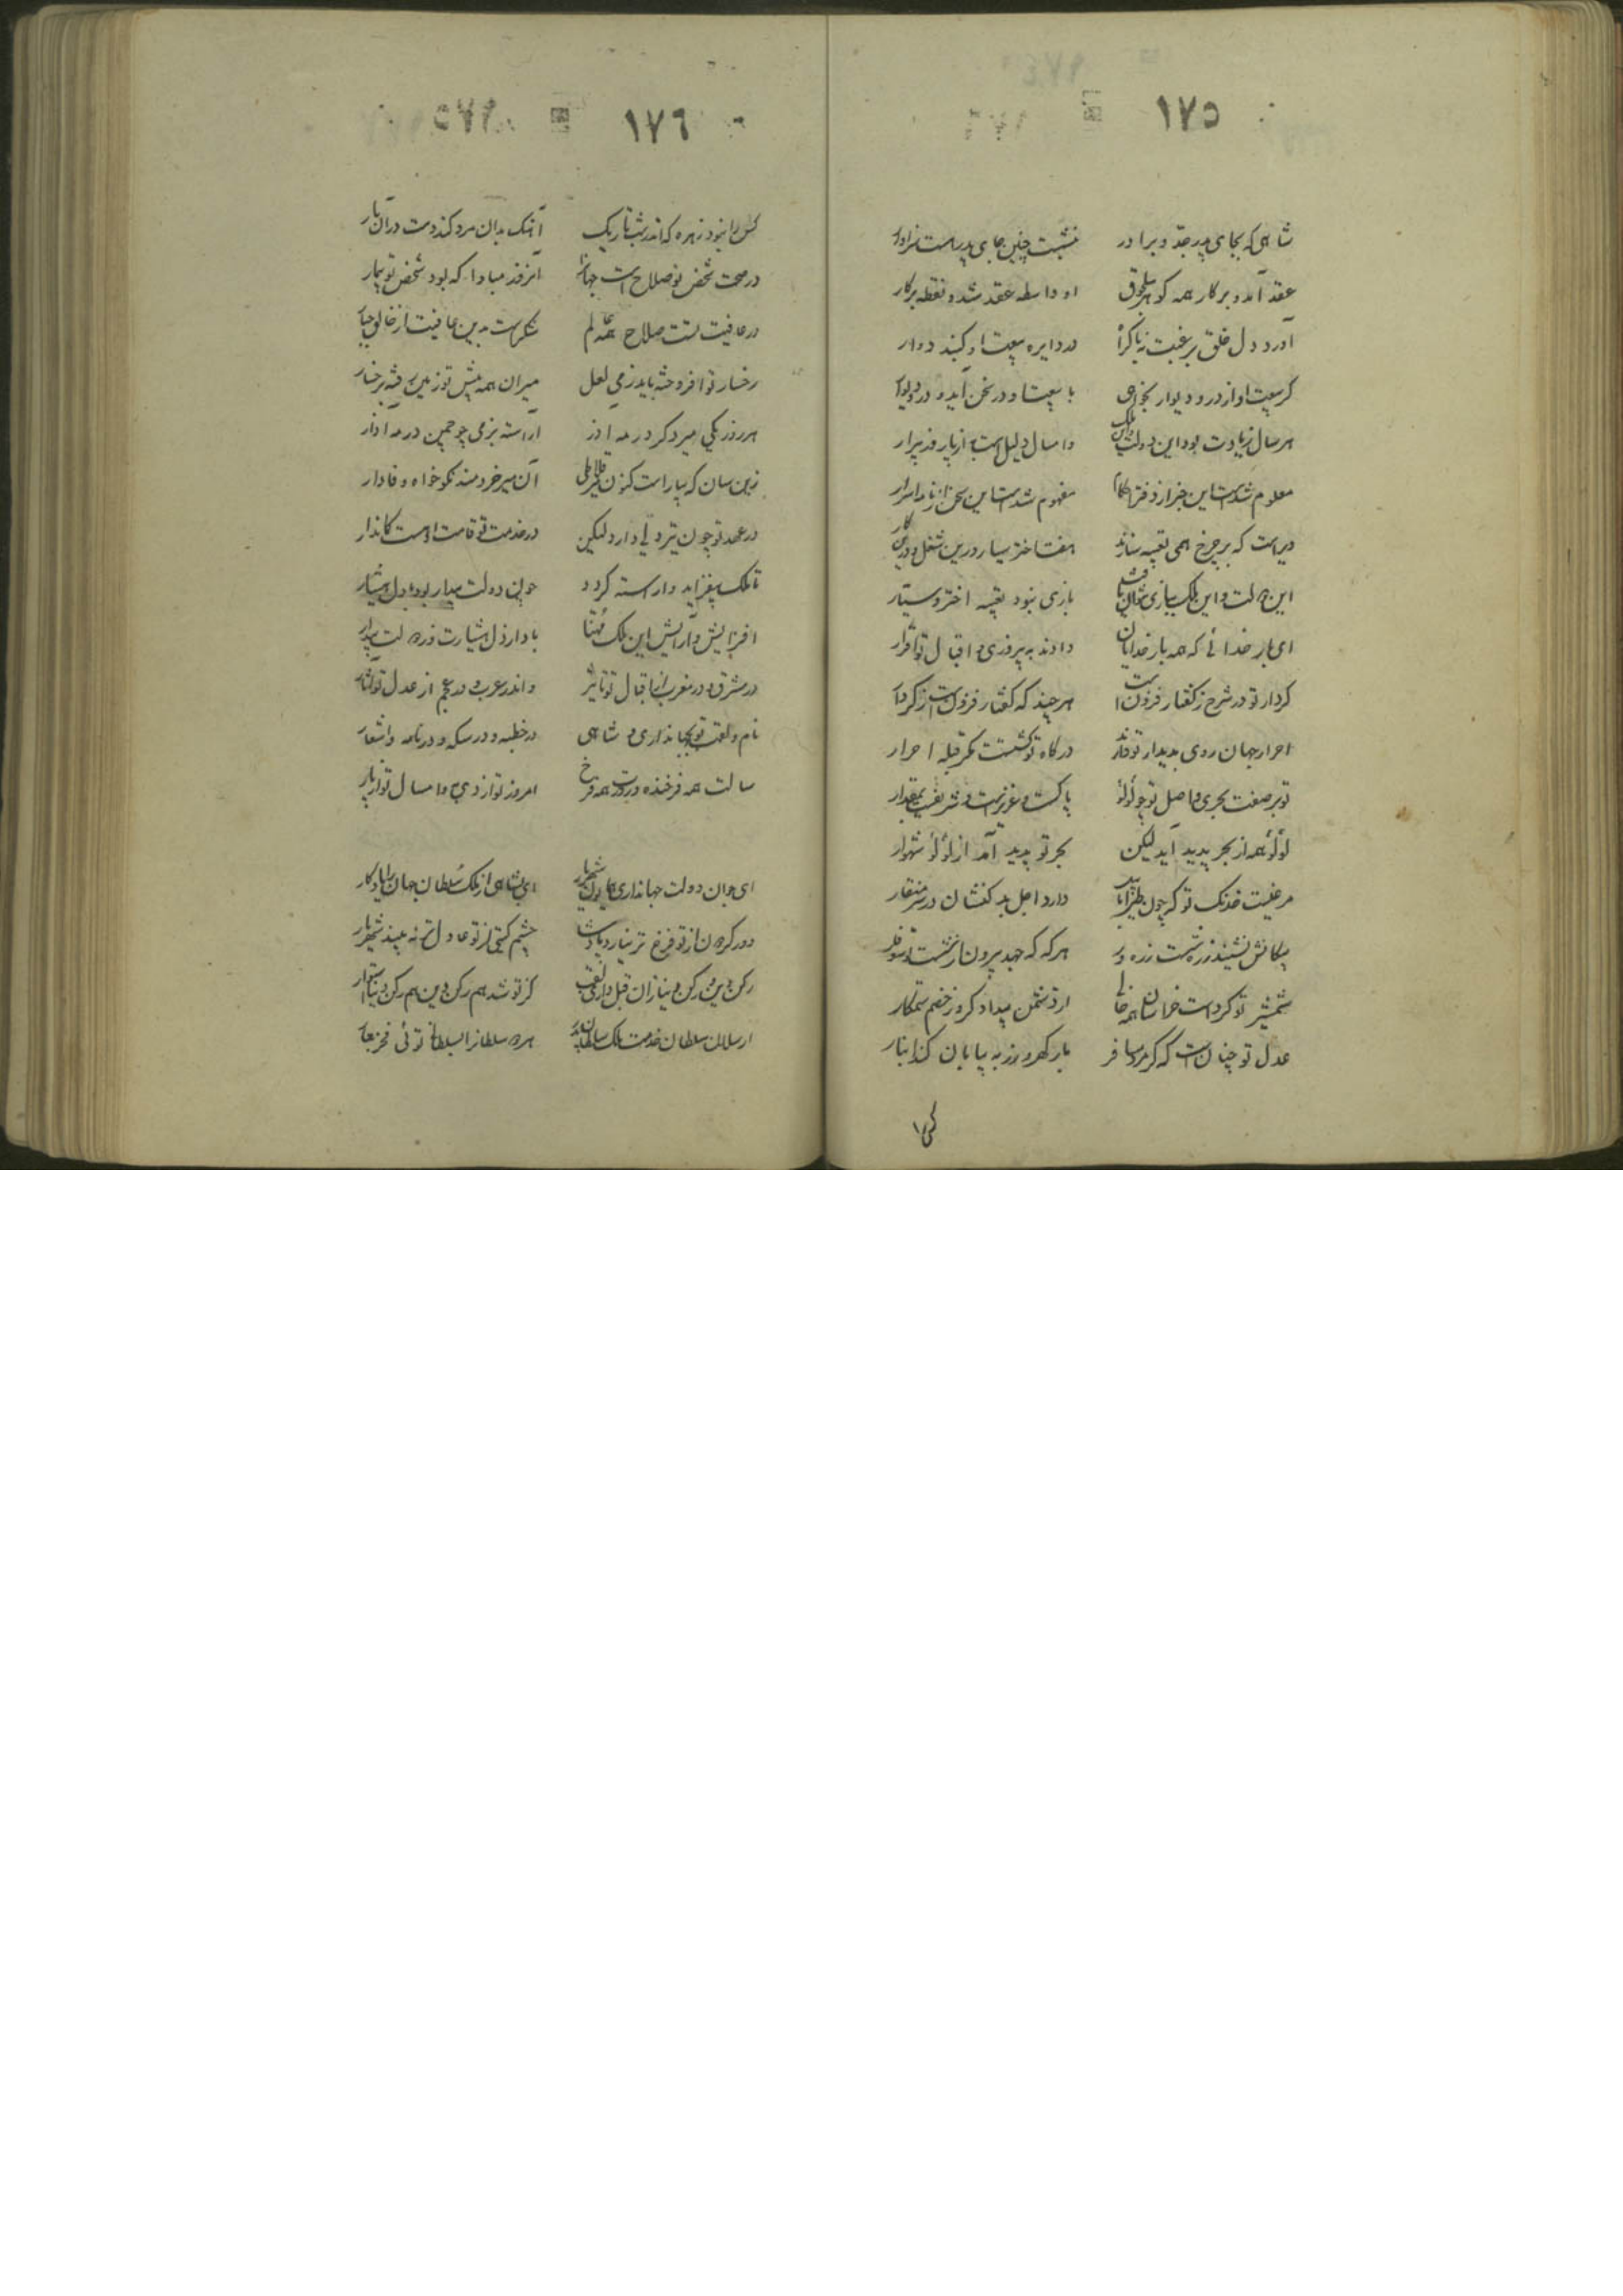 ۱۷۵
شاهی که بجای پدر جد و برادر بنشست چنین جای پدر هست سزاوار
عقد آمد و پرکار همه گوهر سلجوق او واسطه عقد شد و نقطه پرکار
آورد دل خلق برغبت نه باکراه در دایره بیعت او گنبد دوار
گر بیعت او از در و دیوار بخواهی با بیعت او در سخن آید در و دیوار
هر سال زیادت بود این دولت و این ملک و امسال دلیل است از پار و ز پیرار
معلوم شدست این خبر از دفتر احکام مفهوم شدست این سخن از نامه اسرار
دیر است که بر چرخ همی تعبیه سازند هفت اختر سیار درین شغل و درین کار
این دولت و این ملک ببازی نتوان یافت بازی نبود تعبیه اختر سیار
ای بار خدائی که همه بار خدایان دادند به پیروزی و اقبال تو اقرار
کردار تو در شرح ز گفتار فزونست هر چند که گفتار فزونست ز کردار
احرار جهان روی بدیدار تو دارند درگاه تو گشتست مگر قبله احرار
تو بر صفت بحری و اصل تو چو لؤلؤ پاکست و عزیزست و شریفست بمقدار
لؤلؤ همه از بحر پدید آید لیکن بحر تو پدید آمد از لؤلؤ شهوار
مرغیست خدنگ تو که چون طیران یابد دارد اجل بدکنشان در سر منقار
پیکانش نشیند زره شست زره ور هر گه که جهد بیرون از شست تو سوفار
شمشیر تو کردست خراسان همه خالی از دشمن بیدادگر و ز خصم ستمکار
عدل تو چنان است که گر مرد مسافر بار گهر و زر به بیابان کند انبار
کس را
۱۷۶
کس را نبود زهره که اندر شب تاریک آهنگ بدان مرد کند دست در آن بار
در صحت شخص تو صلاح است جهان را آنروز مبادا که بود شخص تو بیمار
در عافیت تست صلاح همه عالم شکرست بدین عافیت از خالق جبار
رخسار تو افروخته باید ز می لعل میران همه پیش تو زمین رفته برخسار
هر روز یکی میر دگر در مه آذر آراسته بزمی چو چمن در مه آذار
زین سان که بیاراست کنون آن میر خردمند نکوخواه وفادار
در عهد تو چون تیر دلی دارد لیکن در خدمت تو قامت او هست کماندار
تا ملک بیفزاید و آراسته گردد چون دولت بیدار بود با دل هشیار
افزایش و آرایش این ملک مهنا بادا ز دل هشیارت وز دولت بیدار
در مشرق و در مغرب از اقبال تو تاثیر واندر عرب و در عجم از عدل تو آثار
نام و لقب تو بجهانداری و شاهی در خطبه و در سکه و در نامه و اشعار
سالت همه فرخنده و روزت همه فرخ امروز تو از دی به و امسال تو از پار
ای جوان دولت جهانداری همایون شهریار ای بشاهی از ملک سلطان جهان را یادگار
دور گردون از تو فرخ تر نیارد پادشا چشم گیتی از تو عادل تر نه بیند شهریار
رکن دین و رکن دنیا زان قبل داری لقب کز تو شد هم رکن دین هم رکن دنیا استوار
ارسلان سلطان خدمت ملک سلطان پدر هر دو سلطان را بسلطانی توئی فخر تبار